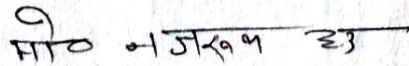 मो० नजरूल